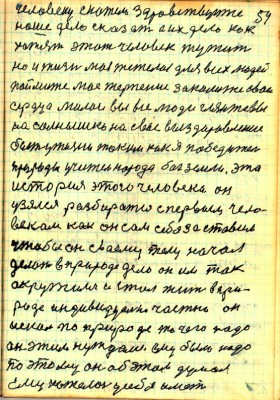 человеку скажем здравствуйте 59
наше дело сказать а их дело как
хотят этот человек тужит
но и жизни моя тяжелая для всех людей
поймите мое терпение закалите свои
сердца милые вы все люди гляньте вы
на солнышко на свое выздоровление
быть таким как я победителем
природы учитель народа бог земли. эта
история этого человека он
взялся разбираться с первым чело-
веком как он сам себя заставил
чтобы он своему телу начал
делать в природе дело он им так
окружился и стал жить в при-
роде индивидуально частно он
искал по природе то чего надо
он этим нуждался ему было надо
по этому он об этом думал
ему хотелось у себя иметь